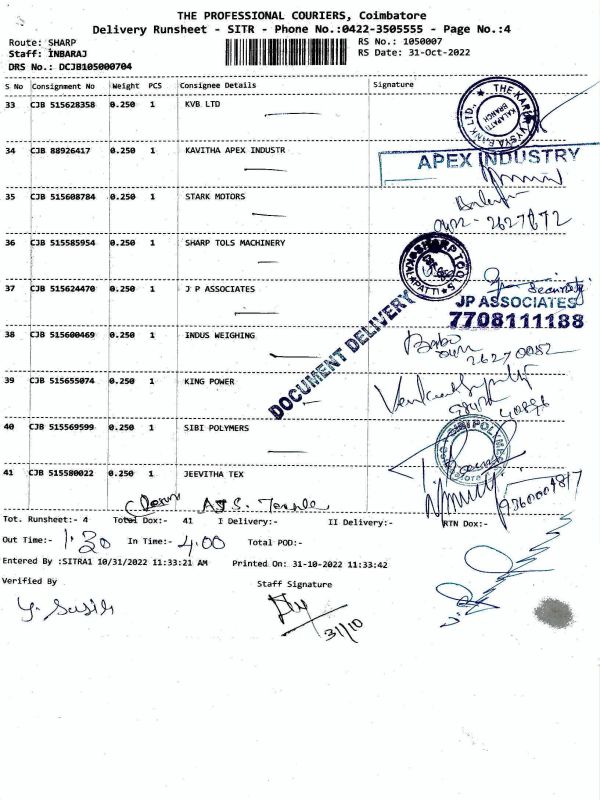 THE PROFESSIONAL COURIERS, Coimbatore
Delivery Runsheet - SITR - Phone No.:0422-3505555 - Page No.:4
Route: SHARP RS No.: 1050007
Staff: INBARAJ RS Date: 31-Oct-2022
DRS No.: DCJB105000704
S No Consignment No Weight PCS Consignee Details Signature
33 CJB 515628358 0.250 1 KVB LTD
THE KARUR VYSYA BANK LTD.,
KALAPATTI
BRANCH
34 CJB 88926417 0.250 1 KAVITHA APEX INDUSTR
APEX INDUSTRY
35 CJB 515608784 0.250 1 STARK MOTORS
36 CJB 515585954 0.250 1 SHARP TOLS MACHINERY
SHARP TOOLS
KALAPATTI
37 CJB 515624470 0.250 1 J P ASSOCIATES
Security
JP ASSOCIATES
7708111188
DOCUMENT DELIVERY
38 CJB 515600469 0.250 1 INDUS WEIGHING
Babu
39 CJB 515655074 0.250 1 KING POWER
40 CJB 515569599 0.250 1 SIBI POLYMERS
SIBI POLYMERS
Stores
41 CJB 515580022 0.250 1 JEEVITHA TEX
Tot. Runsheet:- 4 Total Dox:- 41 I Delivery:- II Delivery:- RTN Dox:-
Out Time:- 1.30 In Time:- 4.00 Total POD:-
Entered By :SITRA1 10/31/2022 11:33:21 AM Printed On: 31-10-2022 11:33:42
Verified By Staff Signature
31/10